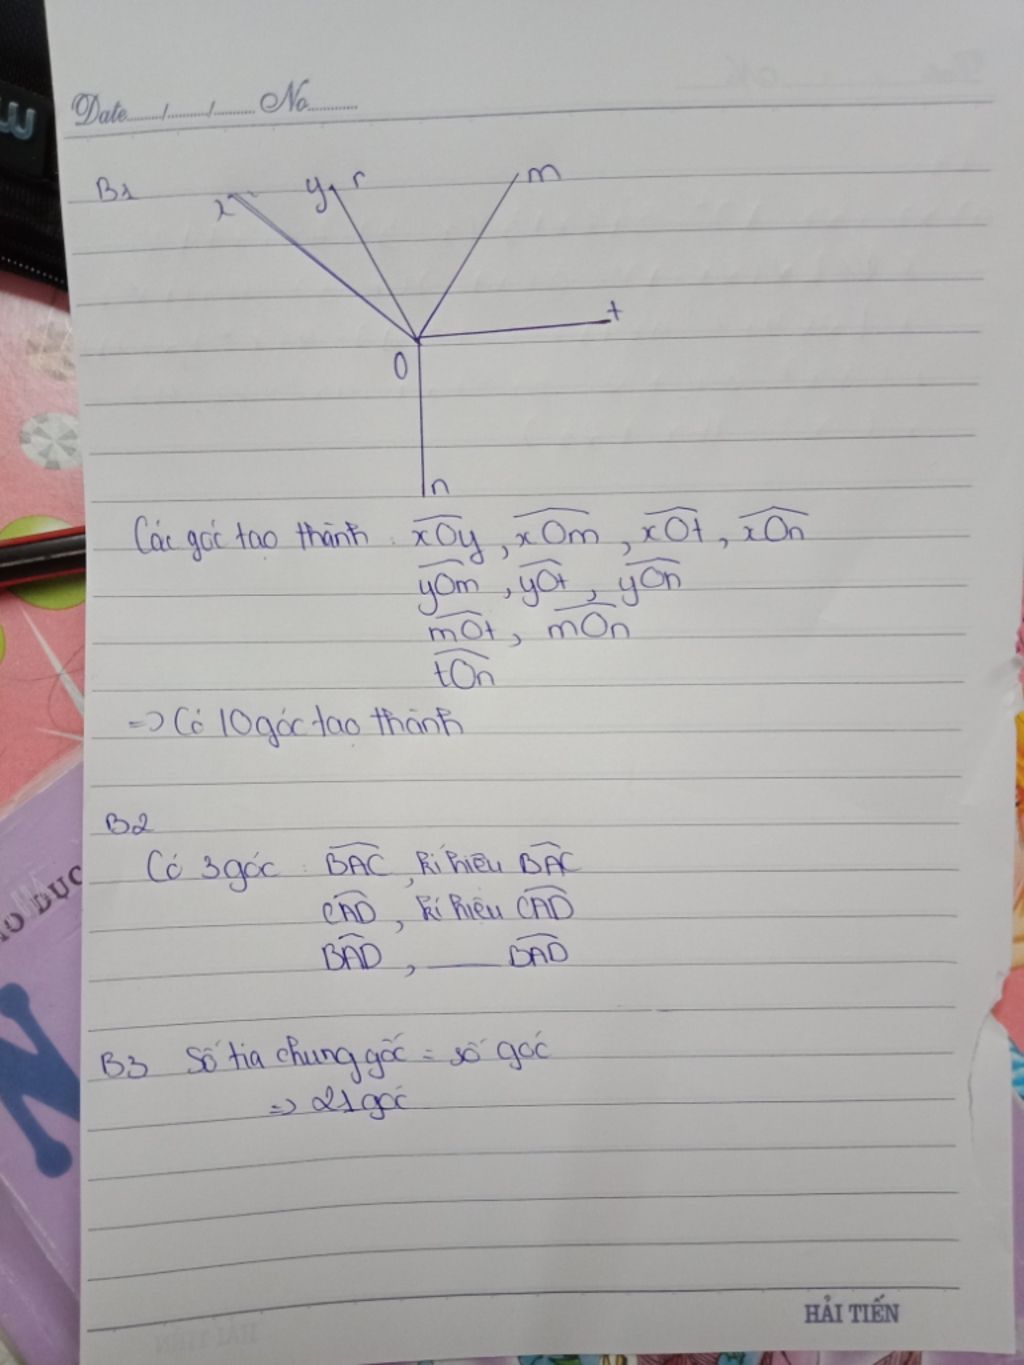 Date....../........./......... No............
B1
x
y
r
m
t
O
n
Các góc tạo thành : xOy , xOm , xOt , xOn
yOm , yOt , yOn
mOt , mOn
tOn
=> Có 10 góc tạo thành
B2
Có 3 góc : BAC , kí hiệu BAC
CAD , kí hiệu CAD
BAD , ___ BAD
B3 Số tia chung gốc = số góc
=> 21 góc
DỤC
N
HẢI TIẾN